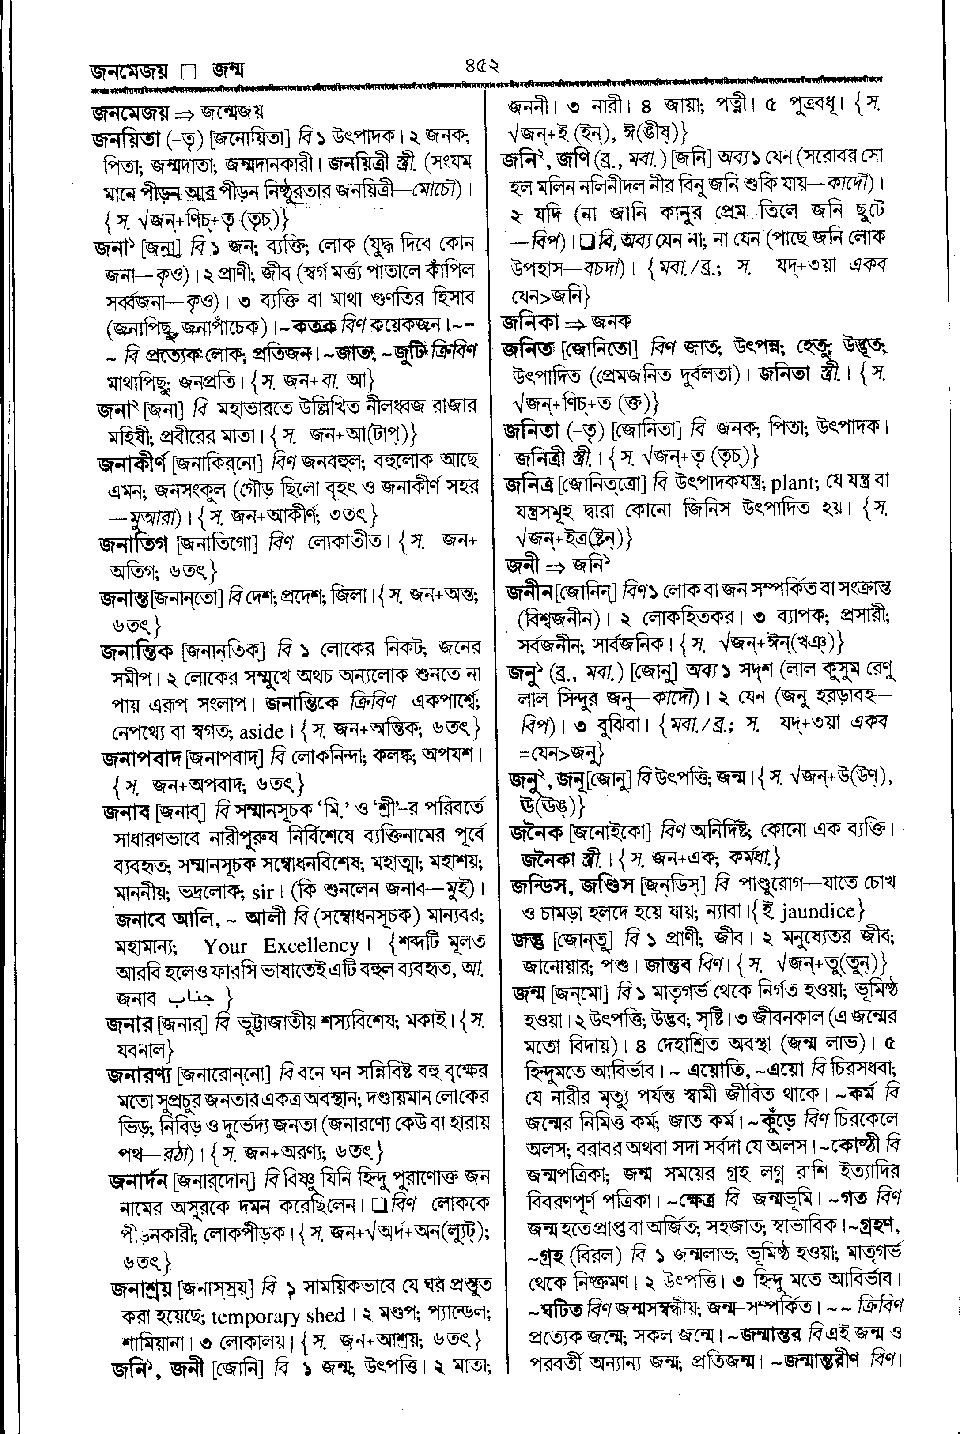 জনমেজয় □ জন্ম
৪৫২
জনমেজয় ⇒ জন্মেজয়
জনয়িতা (–তৃ) [জনোয়িতা] বি ১ উৎপাদক। ২ জনক;
পিতা; জন্মদাতা; জন্মদানকারী। জনয়িত্রী স্ত্রী. (সংযম
মানে পীড়ন আর পীড়ন নিষ্ঠুরতার জনয়িত্রী—মোচৌ)।
{স. √জন+ণিচ্+তৃ (তৃচ্)}
জনা১ [জনা] বি ১ জন; ব্যক্তি; লোক (যুদ্ধ দিবে কোন
জনা—কৃও)। ২ প্রাণী; জীব (স্বর্গ মর্ত্ত্য পাতালে কাঁপিল
সর্ব্বজনা—কৃও)। ৩ ব্যক্তি বা মাথা গুণতির হিসাব
(জনাপিছু, জনাপাঁচেক)। ~কতক বিণ কয়েকজন। ~–
~ বি প্রত্যেক লোক; প্রতিজন। ~জাত; ~জুটি ক্রিবিণ
মাথাপিছু; জনপ্রতি। {স. জন+বা. আ}
জনা২ [জনা] বি মহাভারতে উল্লিখিত নীলধ্বজ রাজার
মহিষী; প্রবীরের মাতা। {স. জন+আ(টাপ্)}
জনাকীর্ণ [জনাকির্‌নো] বিণ জনবহুল; বহুলোক আছে
এমন; জনসংকুল (গৌড় ছিলো বৃহৎ ও জনাকীর্ণ সহর
—মুআরা)। {স. জন+আকীর্ণ; ৩তৎ}
জনাতিগ [জনাতিগো] বিণ লোকাতীত। {স. জন+
অতিগ; ৬তৎ}
জনান্ত [জনান্‌তো] বি দেশ; প্রদেশ; জিলা। {স. জন+অন্ত;
৬তৎ}
জনান্তিক [জনান্‌তিক] বি ১ লোকের নিকট; জনের
সমীপ। ২ লোকের সম্মুখে অথচ অন্যলোক শুনতে না
পায় এরূপ সংলাপ। জনান্তিকে ক্রিবিণ একপার্শ্বে;
নেপথ্যে বা স্বগত; aside। {স. জন+অন্তিক; ৬তৎ}
জনাপবাদ [জনাপবাদ্] বি লোকনিন্দা; কলঙ্ক; অপযশ।
{স. জন+অপবাদ; ৬তৎ}
জনাব [জনাব্] বি সম্মানসূচক ‘মি.’ ও ‘শ্রী’–র পরিবর্তে
সাধারণভাবে নারীপুরুষ নির্বিশেষে ব্যক্তিনামের পূর্বে
ব্যবহৃত; সম্মানসূচক সম্বোধনবিশেষ; মহাত্মা; মহাশয়;
মাননীয়; ভদ্রলোক; sir। (কি শুনলেন জনাব—মুই)।
জনাবে আলি, ~ আলী বি (সম্বোধনসূচক) মান্যবর;
মহামান্য; Your Excellency। {শব্দটি মূলত
আরবি হলেও ফারসি ভাষাতেই এটি বহুল ব্যবহৃত, আ.
জনাব جناب}
জনার [জনার্] বি ভুট্টাজাতীয় শস্যবিশেষ; মকাই। {স.
যবনাল}
জনারণ্য [জনারোন্‌নো] বি বনে ঘন সন্নিবিষ্ট বহু বৃক্ষের
মতো সুপ্রচুর জনতার একত্র অবস্থান; দণ্ডায়মান লোকের
ভিড়; নিবিড় ও দুর্ভেদ্য জনতা (জনারণ্যে কেউ বা হারায়
পথ—রঠা)। {স. জন+অরণ্য; ৬তৎ}
জনার্দন [জনার্‌দোন্] বি বিষ্ণু যিনি হিন্দু পুরাণোক্ত জন
নামের অসুরকে দমন করেছিলেন। □ বিণ লোককে
পীড়নকারী; লোকপীড়ক। {স. জন+√অর্দ+অন(ল্যুট্);
৬তৎ}
জনাশ্রয় [জনাস্‌স্রয়্] বি ১ সাময়িকভাবে যে ঘর প্রস্তুত
করা হয়েছে; temporary shed। ২ মণ্ডপ; প্যান্ডেল;
শামিয়ানা। ৩ লোকালয়। {স. জন+আশ্রয়; ৬তৎ}
জনি১, জনী [জোনি] বি ১ জন্ম; উৎপত্তি। ২ মাতা;
জননী। ৩ নারী। ৪ জায়া; পত্নী। ৫ পুত্রবধূ। {স.
√জন্+ই (ইন্), ঈ(ঙীষ্)}
জনি২, জণি (ব্র., মবা.) [জনি] অব্য ১ যেন (সরোবর সো
হল মলিন নলিনীদল নীর বিনু জনি শুকি যায়—কাদৌ)।
২ যদি (না জানি কানুর প্রেম তিলে জনি ছুটে
—বিপ)। □ বি, অব্য যেন না; না যেন (পাছে জনি লোক
উপহাস—বচদা)। {মবা./ব্র.; স. যদ্+৩য়া একব
যেন>জনি}
জনিকা ⇒ জনক
জনিত [জোনিতো] বিণ জাত; উৎপন্ন; হেতু; উদ্ভূত;
উৎপাদিত (প্রেমজনিত দুর্বলতা)। জনিতা স্ত্রী.। {স.
√জন্+ণিচ্+ত (ক্ত)}
জনিতা (–তৃ) [জোনিতা] বি জনক; পিতা; উৎপাদক।
জনিত্রী স্ত্রী.। {স. √জন্+তৃ (তৃচ্)}
জনিত্র [জোনিত্‌ত্রো] বি উৎপাদকযন্ত্র; plant; যে যন্ত্র বা
যন্ত্রসমূহ দ্বারা কোনো জিনিস উৎপাদিত হয়। {স.
√জন্+ইত্র(ষ্ট্রন্)}
জনী ⇒ জনি১
জনীন [জোনিন্] বিণ ১ লোক বা জন সম্পর্কিত বা সংক্রান্ত
(বিশ্বজনীন)। ২ লোকহিতকর। ৩ ব্যাপক; প্রসারী;
সর্বজনীন; সার্বজনিক। {স. √জন্+ঈন্(খঞ্)}
জনু১ (ব্র., মবা.) [জোনু] অব্য ১ সদৃশ (লাল কুসুম রেণু
লাল সিন্দুর জনু—কাদৌ)। ২ যেন (জনু হরড়াবহ—
বিপ)। ৩ বুঝিবা। {মবা./ব্র.; স. যদ্+৩য়া একব
=যেন>জনু}
জনু২, জনূ [জোনু] বি উৎপত্তি; জন্ম। {স. √জন্+উ(উণ্),
ঊ(ঊঙ্)}
জনৈক [জনোইকো] বিণ অনির্দিষ্ট; কোনো এক ব্যক্তি।
জনৈকা স্ত্রী.। {স. জন+এক; কর্মধা.}
জন্ডিস, জণ্ডিস [জন্‌ডিস্] বি পাণ্ডুরোগ—যাতে চোখ
ও চামড়া হলদে হয়ে যায়; ন্যাবা। {ই jaundice}
জন্তু [জোন্‌তু] বি ১ প্রাণী; জীব। ২ মনুষ্যেতর জীব;
জানোয়ার; পশু। জান্তব বিণ। {স. √জন্+তু(তুন্)}
জন্ম [জন্‌মো] বি ১ মাতৃগর্ভ থেকে নির্গত হওয়া; ভূমিষ্ঠ
হওয়া। ২ উৎপত্তি; উদ্ভব; সৃষ্টি। ৩ জীবনকাল (এ জন্মের
মতো বিদায়)। ৪ দেহাশ্রিত অবস্থা (জন্ম লাভ)। ৫
হিন্দুমতে আবির্ভাব। ~ এয়োতি, ~এয়ো বি চিরসধবা;
যে নারীর মৃত্যু পর্যন্ত স্বামী জীবিত থাকে। ~কর্ম বি
জন্মের নিমিত্ত কর্ম; জাত কর্ম। ~কুঁড়ে বিণ চিরকেলে
অলস; বরাবর অথবা সদা সর্বদা যে অলস। ~কোষ্ঠী বি
জন্মপত্রিকা; জন্ম সময়ের গ্রহ লগ্ন রাশি ইত্যাদির
বিবরণপূর্ণ পত্রিকা। ~ক্ষেত্র বি জন্মভূমি। ~গত বিণ
জন্ম হতে প্রাপ্ত বা অর্জিত; সহজাত; স্বাভাবিক। ~গ্রহণ,
~গ্রহ (বিরল) বি ১ জন্মলাভ; ভূমিষ্ঠ হওয়া; মাতৃগর্ভ
থেকে নিষ্ক্রমণ। ২ উৎপত্তি। ৩ হিন্দু মতে আবির্ভাব।
~ঘটিত বিণ জন্মসম্বন্ধীয়; জন্ম–সম্পর্কিত। ~ ~ ক্রিবিণ
প্রত্যেক জন্মে; সকল জন্মে। ~জন্মান্তর বি এই জন্ম ও
পরবর্তী অন্যান্য জন্ম; প্রতিজন্ম। ~জন্মান্তরীণ বিণ।